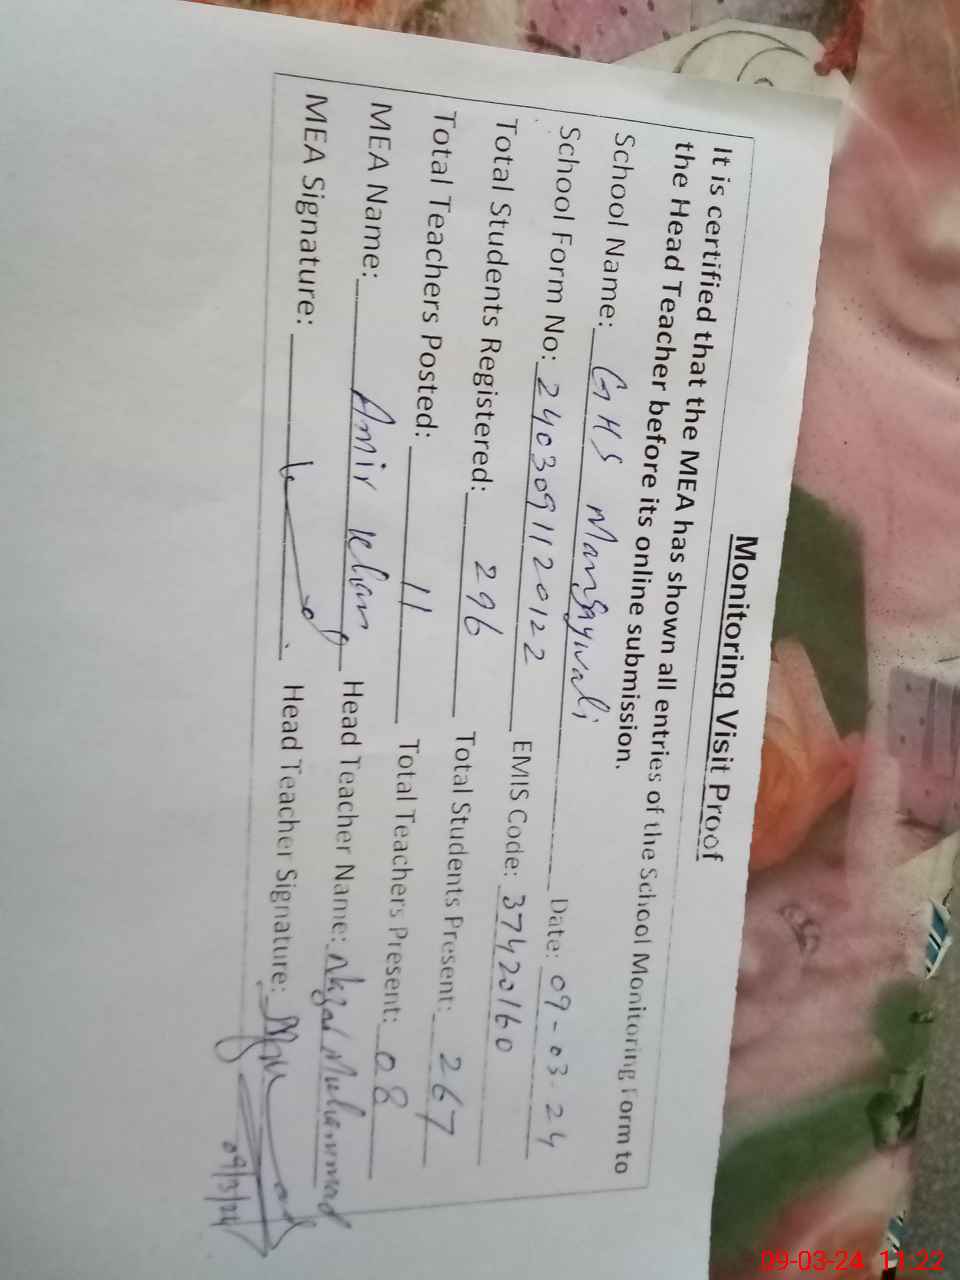 Monitoring Visit Proof
It is certified that the MEA has shown all entries of the School Monitoring Form to
the Head Teacher before its online submission.
School Name: GHS Date: 09-03-24
School Form No: 2403091120122 EMIS Code: 37420160
Total Students Registered: 296 Total Students Present: 267
Total Teachers Posted: 11 Total Teachers Present: 08
MEA Name: Amir Khan Head Teacher Name: Muhammad
MEA Signature: Head Teacher Signature:
09/3/24
09-03-24 11:22